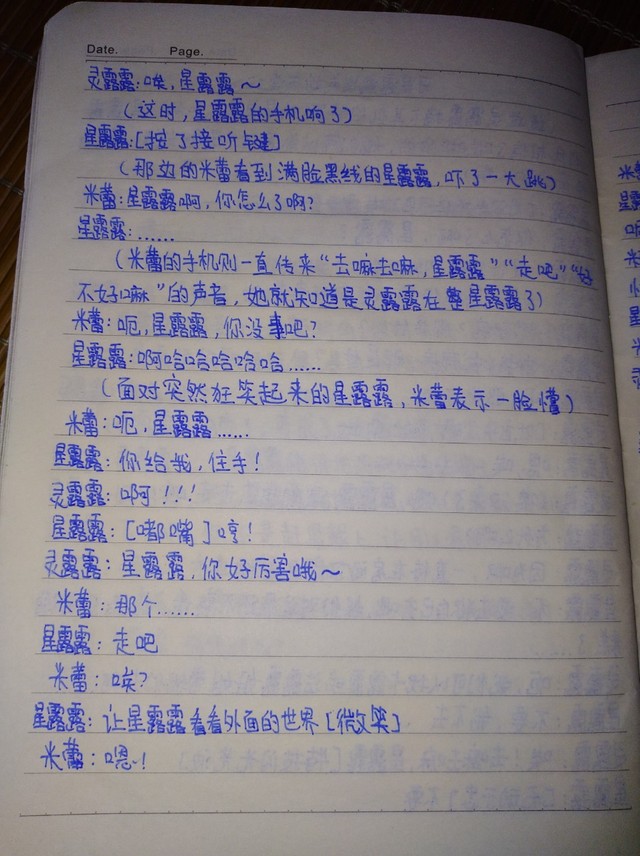 Date. Page.
灵露露:唉,星露露～
(这时,星露露的手机响了)
星露露:[按了接听键]
(那边的米蕾看到满脸黑线的星露露,吓了一大跳)
米蕾:星露露啊,你怎么了啊?
星露露:……
(米蕾的手机则一直传来“去嘛去嘛,星露露”“走吧”“好
不好嘛”的声音,她就知道是灵露露在整星露露了)
米蕾:呃,星露露,你没事吧?
星露露:啊哈哈哈哈哈……
(面对突然狂笑起来的星露露,米蕾表示一脸懵)
米蕾:呃,星露露……
星露露:你给我,住手!
灵露露:啊!!!
星露露:[嘟嘴]哼!
灵露露:星露露,你好厉害哦～
米蕾:那个……
星露露:走吧
米蕾:唉?
星露露:让星露露看看外面的世界[微笑]
米蕾:嗯!